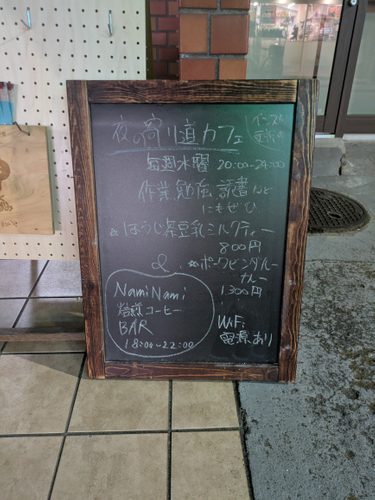 夜の寄り道カフェ
毎週水曜 20:00-24:00
作業 勉強 読書など
にもぜひ
☆ほうじ茶豆乳ミルクティー
800円
& ☆ポークビンダルー
カレー
1300円
NamiNami
焙煎コーヒー
BAR
18:00~22:00
WiFi
電源あり